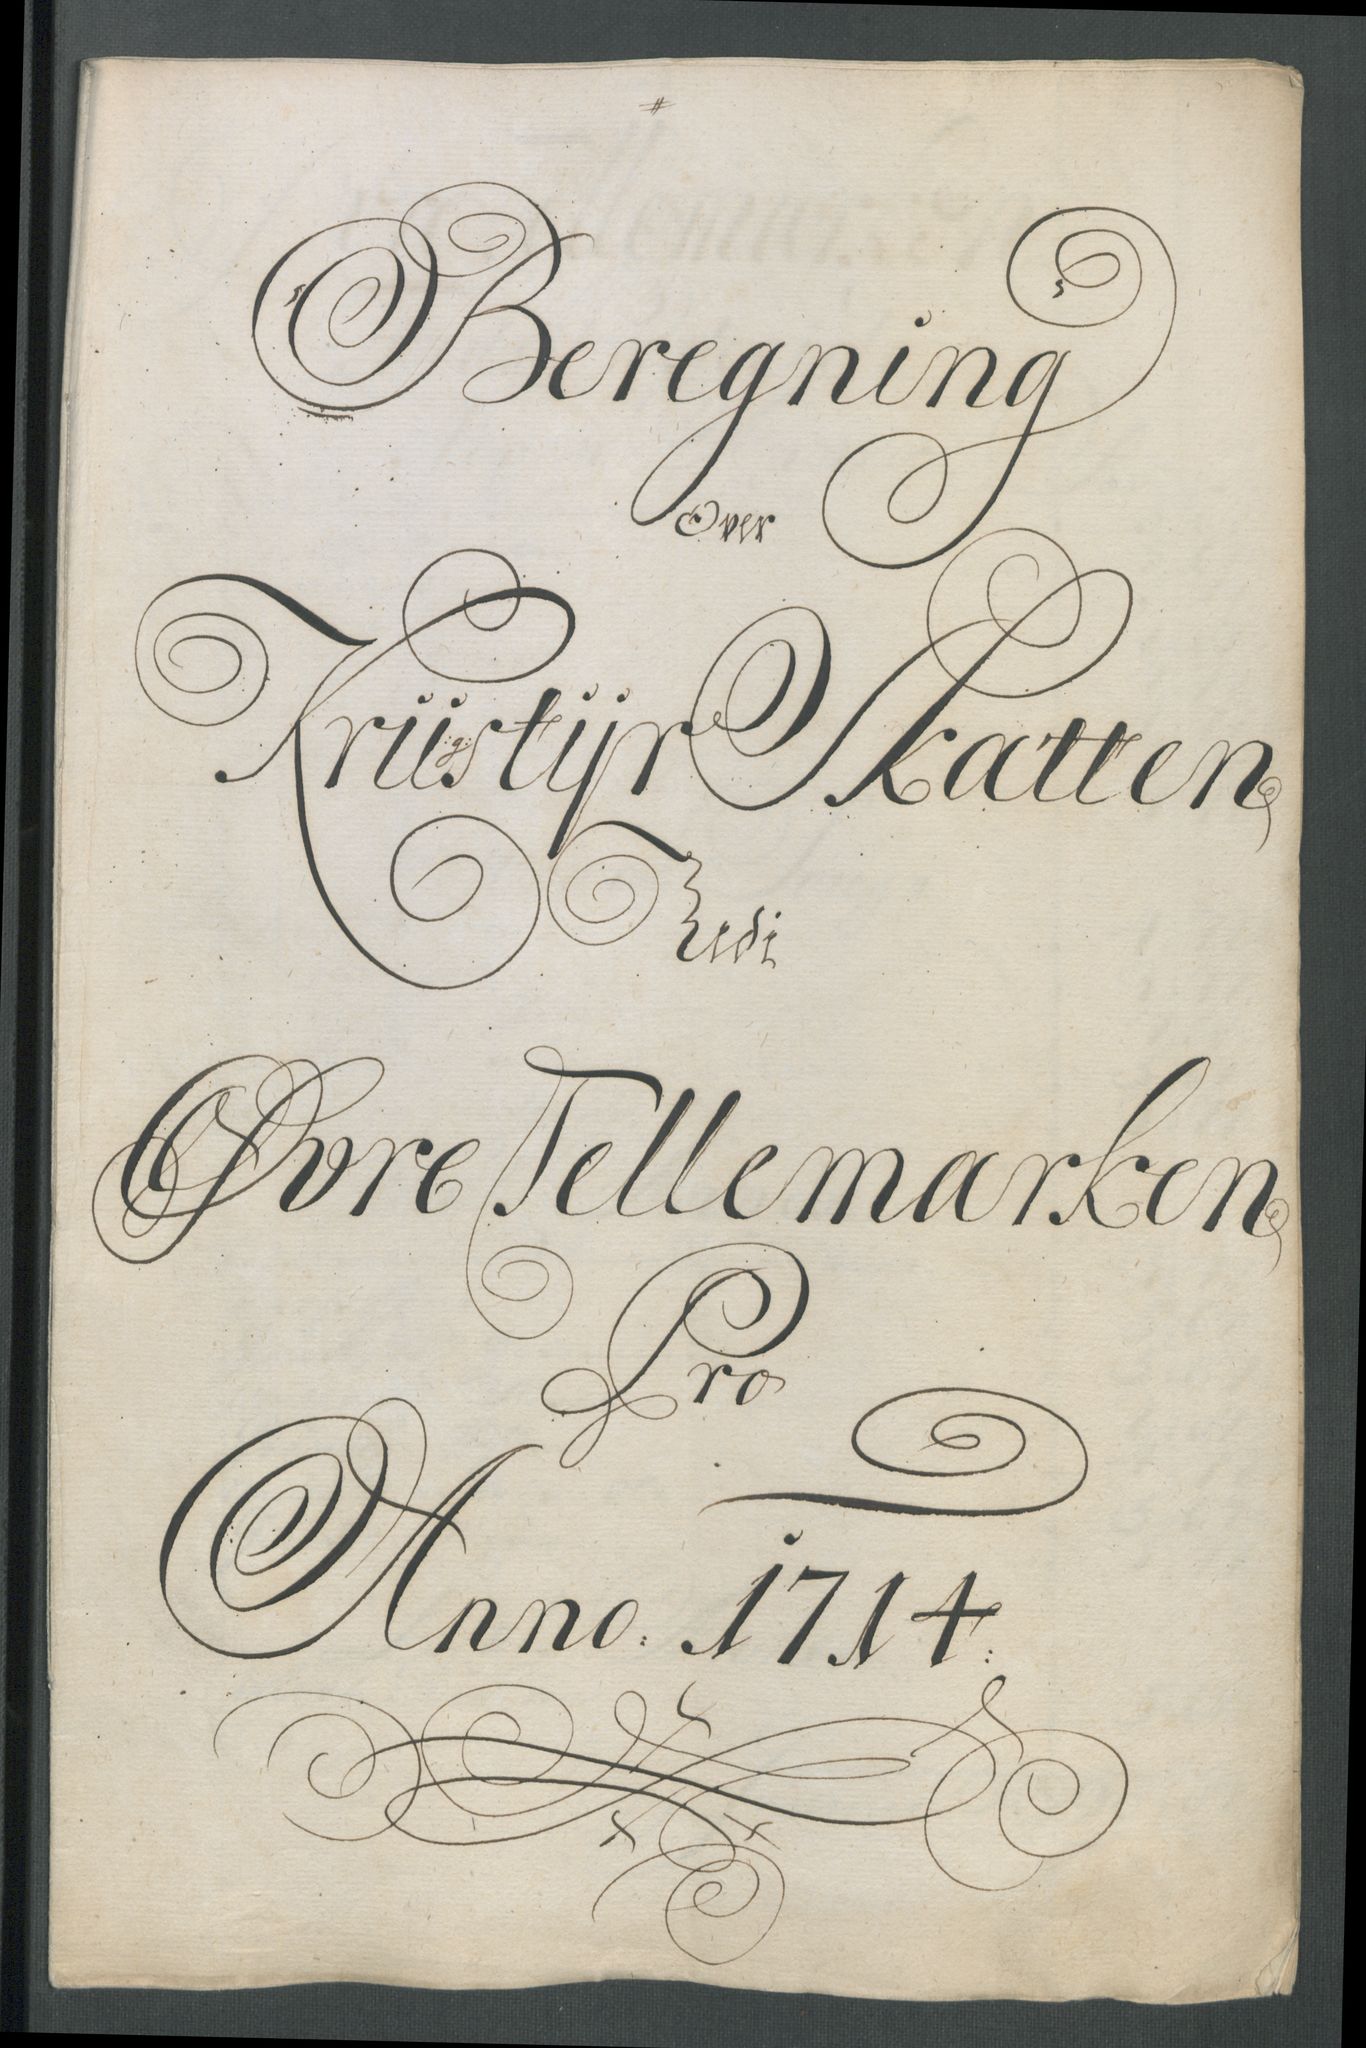 #
Beregning
Over
Krii:g:styr Skatten
Udi
Øvre Tellemarken
Pro
Anno: 1714: